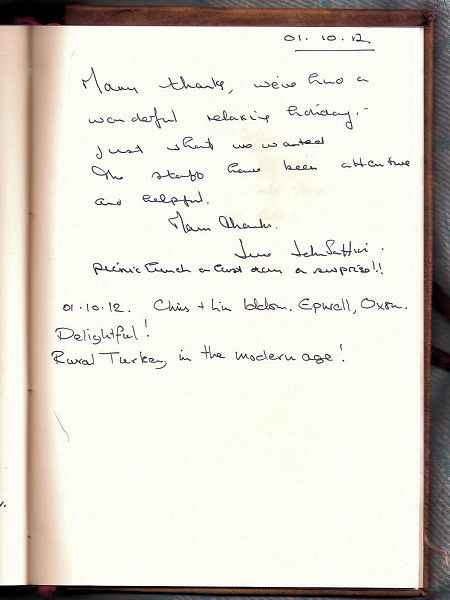 01.10.12
Many thanks, we've had a
wonderful relaxing holiday.-
Just what we wanted
The staff have been attentive
and helpful.
Many thanks.
picnic lunch on last day a surprise!!
01.10.12. Chris + Lin Epwell, Oxon.
Delightful!
Rural Turkey in the modern age!